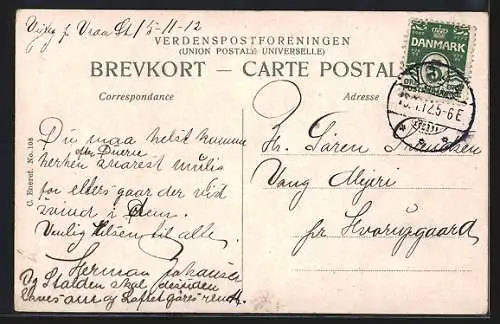 Vraa St / 5-11-12
VERDENSPOSTFORENINGEN
(UNION POSTALE UNIVERSELLE)
BREVKORT — CARTE POSTALE
Correspondance
Adresse
DANMARK
5
C. Eneret. No. 108
Du maa helst komme
herhen snarest mulig
for ellers gaar der vist
Svind i dem.
Venlig Hilsen til alle.
Herman Johansen
Og Stalden skal desuden
og Loftet gøres rent.
Hr. Søren
Vang Mejeri
pr Hvorupgaard